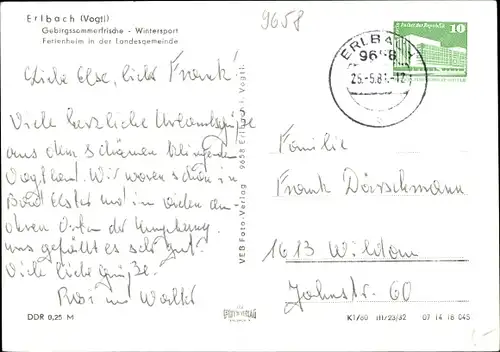 Erlbach (Vogtl)
Gebirgssommerfrische - Wintersport
Ferienheim in der Landesgemeinde
9658
ERLBACH
9658
25.-5.81.-12
10
Liebe Else, lieber Frank!
Viele herzliche Urlaubsgrüße
aus dem schönen blühenden
Vogtland. Wir waren schon in
Bad Elster und in vielen an-
deren Orten der Umgebung.
uns gefällt es sehr gut.
Viele liebe Grüße.
Rosi und Walter
VEB Foto-Verlag 9658 Erlbach Vogtl.
Familie
Frank Dörschmann
1613 Wildau
Jahnstr. 60
DDR 0,25 M
K1/80 III/23/32 07 14 16 045